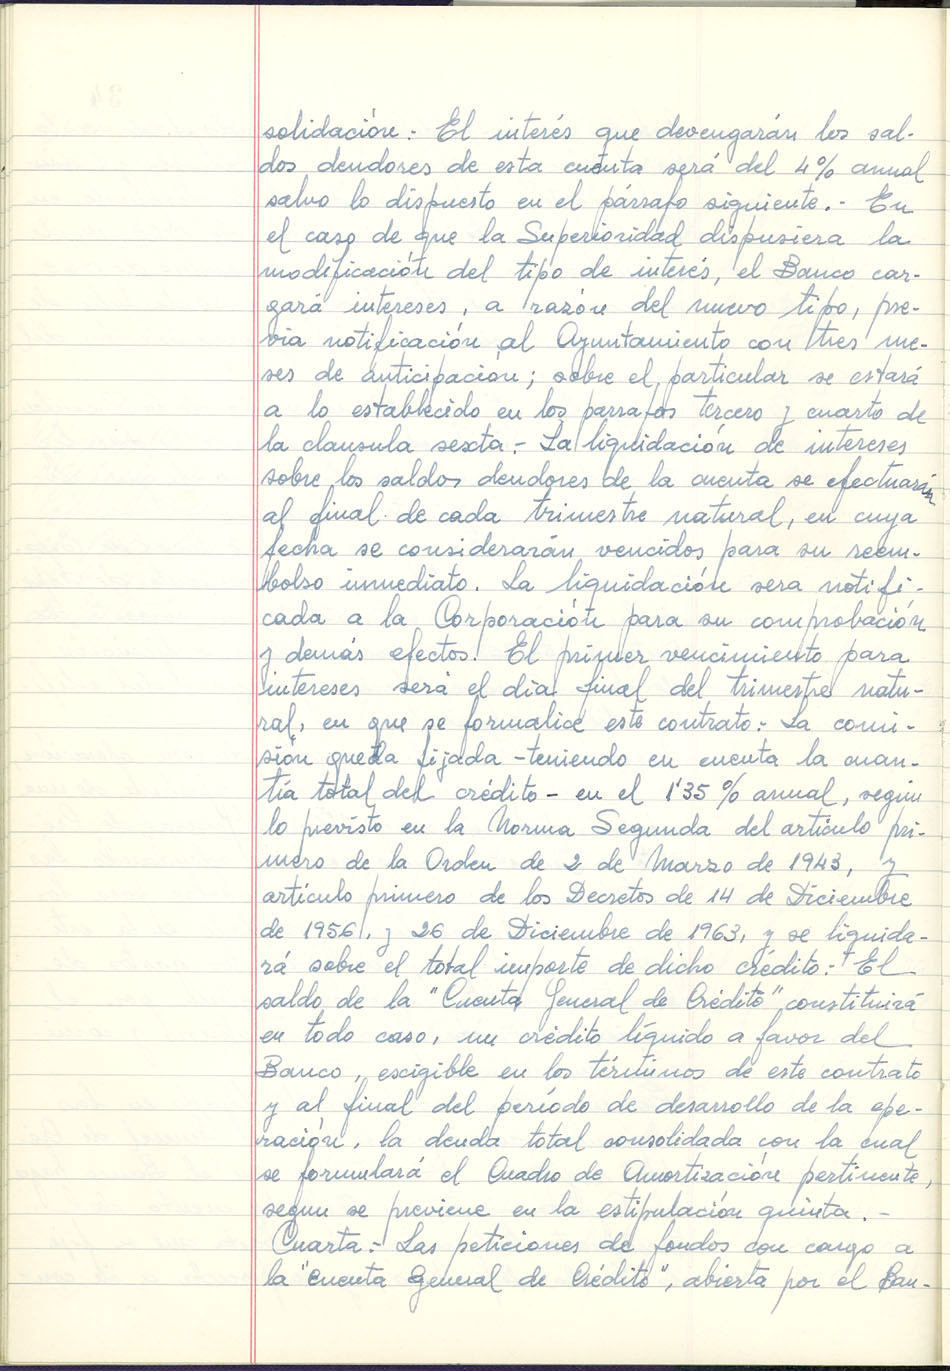 solidación.- El interés que devengarán los sal-
dos deudores de esta cuenta será del 4% anual
salvo lo dispuesto en el párrafo siguiente.- En
el caso de que la Superioridad dispusiera la
modificación del tipo de interés, el Banco car-
gará intereses, a razón del nuevo tipo, pre-
via notificación al Ayuntamiento con tres me-
ses de anticipación; sobre el particular se estará
a lo establecido en los parrafos tercero y cuarto de
la clausula sexta.- La liquidación de intereses
sobre los saldos deudores de la cuenta se efectuarán
al final de cada trimestre natural, en cuya
fecha se considerarán vencidos para su reem-
bolso inmediato. La liquidación sera notifi-
cada a la Corporación para su comprobación
y demás efectos. El primer vencimiento para
intereses será el día final del trimestre natu-
ral, en que se formalice este contrato.- La comi-
sión queda fijada -teniendo en cuenta la cuan-
tía total del crédito- en el 1'35% anual, según
lo previsto en la Norma Segunda del artículo pri-
mero de la Orden de 2 de Marzo de 1943, y
artículo primero de los Decretos de 14 de Diciembre
de 1956, y 26 de Diciembre de 1963, y se liquida-
rá sobre el total importe de dicho crédito.- El
saldo de la "Cuenta General de Crédito" constituirá
en todo caso, un crédito líquido a favor del
Banco, escigible en los términos de este contrato
y al final del período de desarrollo de la ope-
ración, la deuda total consolidada con la cual
se formulará el Cuadro de Amortización pertinente,
segun se previene en la estipulación quinta.-
Cuarta.- Las peticiones de fondos con cargo a
la "Cuenta General de Crédito", abierta por el Ban-